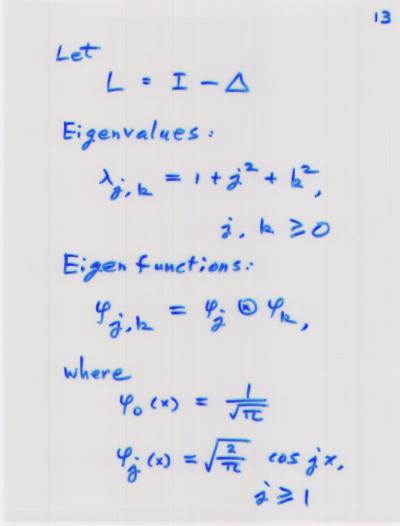 13
Let
L = I − Δ
Eigenvalues:
λ_{j,k} = 1 + j² + k²,
j, k ≥ 0
Eigenfunctions:
φ_{j,k} = φ_j ⊗ φ_k,
where
φ₀(x) = 1/√π
φ_j(x) = √(2/π) cos jx,
j ≥ 1